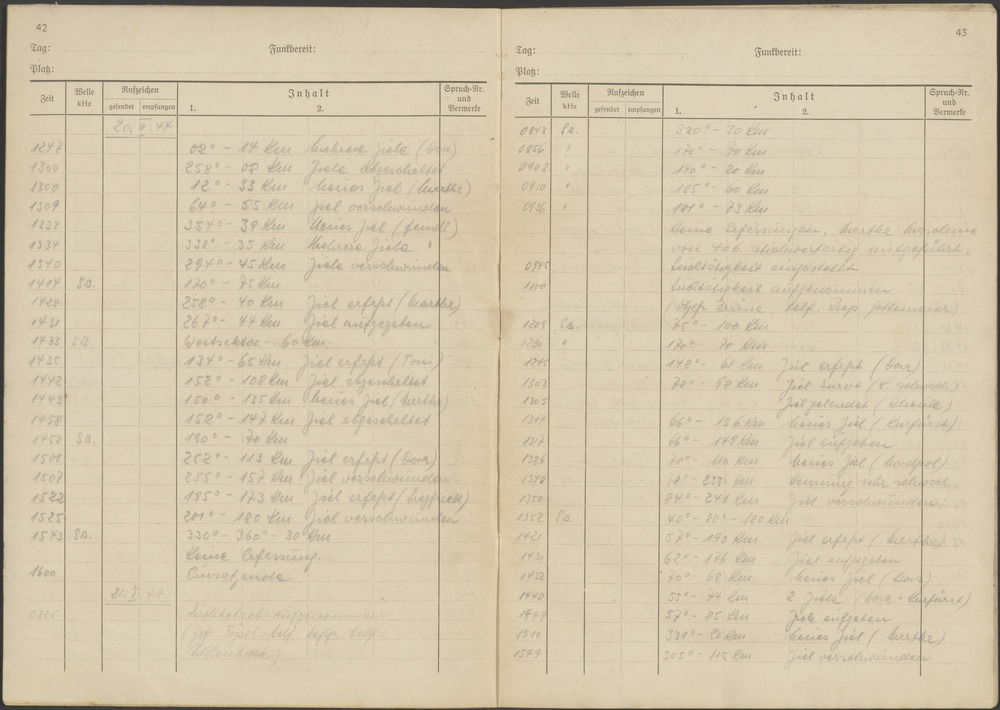 42
Tag: Funkbereit:
Platz:
Zeit Welle kHz Rufzeichen gesendet empfangen Inhalt 1. 2. Spruch-Nr. und Vermerke
20. V. 44
1247 02° - 14 Km Mehrere Ziele (Dora)
1300 258° - 08 Km Ziele abgeschaltet
1300 12° - 33 Km Neues Ziel (Marthe)
1309 64° - 55 Km Ziel verschwunden
1332 354° - 39 Km Neues Ziel
1334 338° - 35 Km Mehrere Ziele "
1340 294° - 45 Km Ziele verschwunden
1414 SB. 170° - 75 Km
1428 258° - 40 Km Ziel erfaßt (Marthe)
1431 267° - 44 Km Ziel aufgegeben
1433 SB Westsektor - 60 Km
1435 134° - 65 Km Ziel erfaßt (Toni)
1442 152° - 108 Km Ziel abgeschaltet
1443 150° - 135 Km Neues Ziel (Marthe)
1458 152° - 147 Km Ziel abgeschaltet
1458 SB. 190° - 70 Km
1501 252° - 113 Km Ziel erfaßt (Dora)
1507 255° - 157 Km Ziel verschwunden
1522 195° - 173 Km Ziel erfaßt (Siegfried)
1525 201° - 180 Km Ziel verschwunden
1543 SB. 330° - 360° - 30 Km
Keine Erfassung.
1600 Einsatzende
21. V. 44
aufgenommen
43
Tag: Funkbereit:
Platz:
Zeit Welle kHz Rufzeichen gesendet empfangen Inhalt 1. 2. Spruch-Nr. und Vermerke
0843 SB. 320° - 30 Km
0856 " 170° - 70 Km
0908 " 140° - 20 Km
0910 " 185° - 60 Km
0936 " 181° - 73 Km
Keine Erfassungen. Marthe
von 406 ausgeführt.
0945 eingestellt
1100 aufgenommen
1209 SB. 75° - 100 Km
1230 " 170° - 70 Km
1245 148° - 61 Km Ziel erfaßt (Dora)
1303 78° - 98 Km Ziel
1305 Ziel gelandet
1314 66° - 136 Km Neues Ziel (Kurfürst)
1317 66° - 149 Km Ziel aufgeben
1326 78° - 110 Km Neues Ziel (Nordpol)
1340 Km sehr schwach
1350 84° - 241 Km Ziel verschwunden.
1352 SB. 40° - 80° - 180 Km
1421 57° - 190 Km Ziel erfaßt (Marthe)
1430 62° - 176 Km Ziel aufgegeben
1432 70° - 68 Km Neues Ziel (Dora)
1440 55° - 74 Km 2 Ziele (Dora + Kurfürst)
1449 57° - 85 Km Ziele aufgeben
1510 331° - 80 Km Neues Ziel (Marthe)
1549 305° - 115 Km Ziel verschwunden